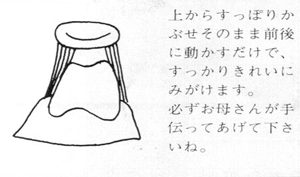 上からすっぽりか
ぶせそのまま前後
に動かすだけで、
すっかりきれいに
みがけます。
必ずお母さんが手
伝ってあげて下さ
いね。